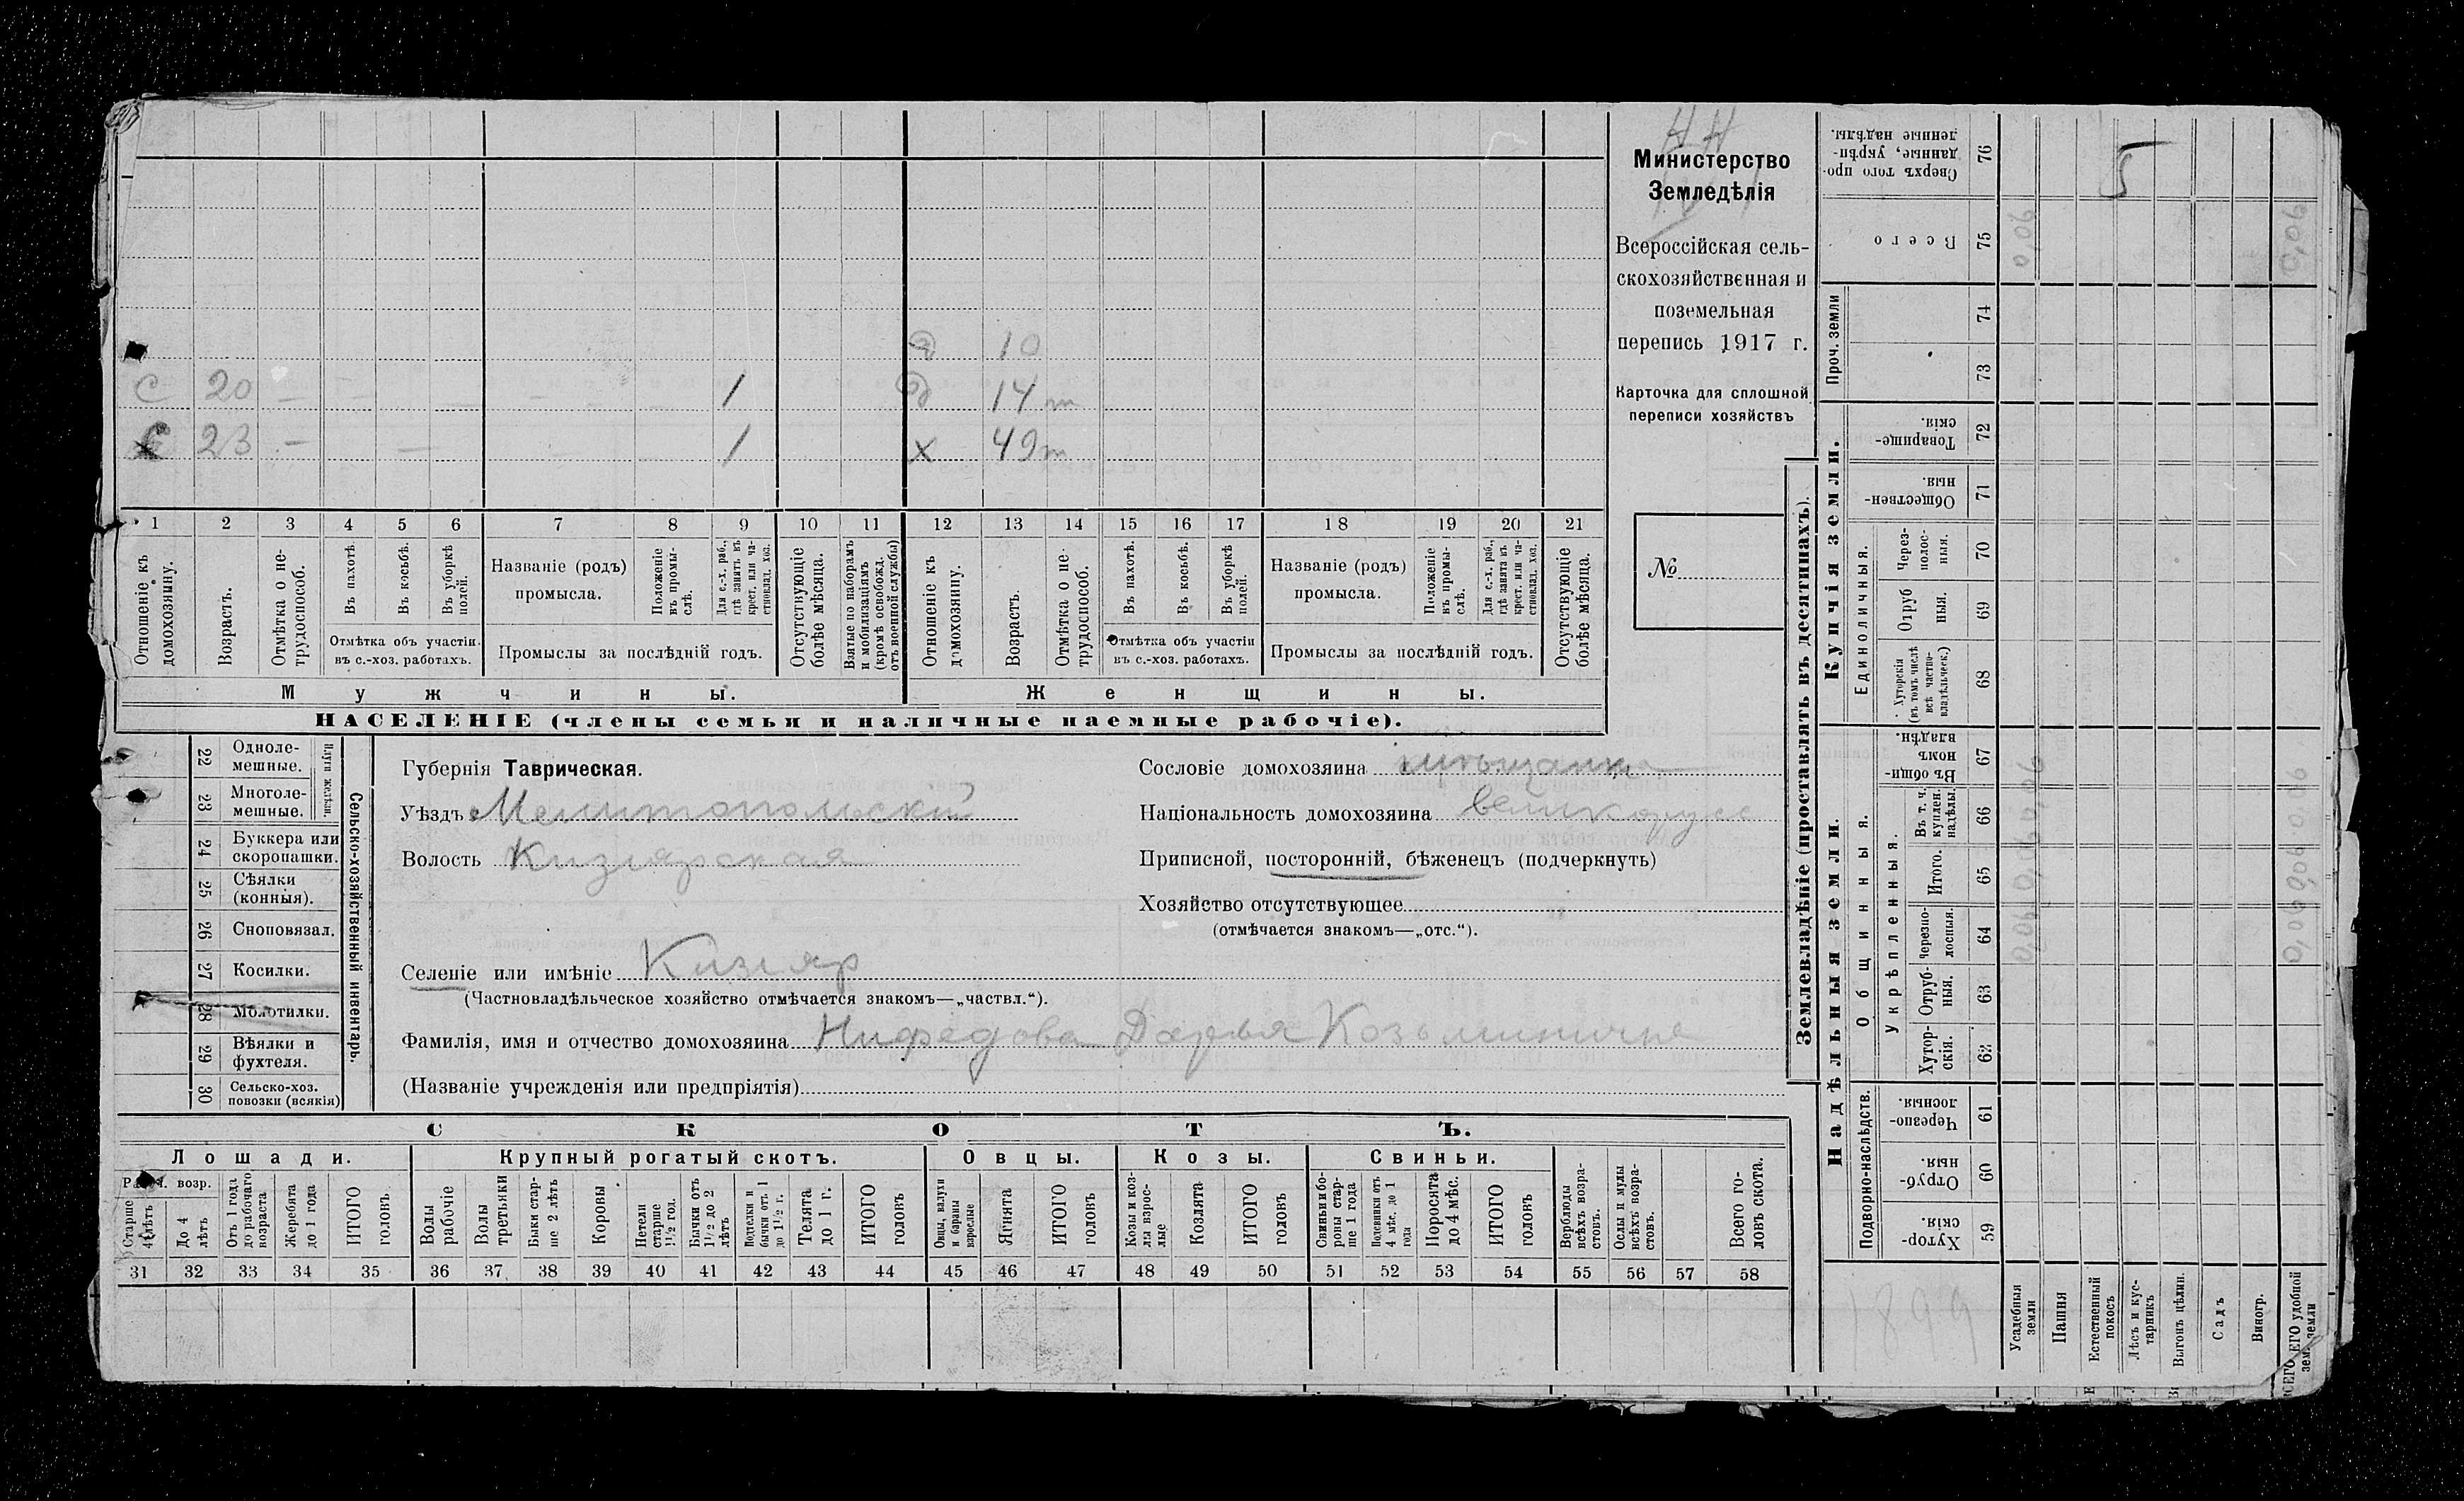 Д 10
С 20 — — — — — 1 Д 14 т
С 23 — — — 1 X 49 т
1 2 3 4 5 6 7 8 9 10 11 12 13 14 15 16 17 18 19 20 21
Отношеніе къ домохозяину.
Возрастъ.
Отмѣтка о не-
трудоспособ.
Въ пахотѣ.
Въ косьбѣ.
Въ уборкѣ полей.
Отмѣтка объ участіи
въ с.-хоз. работахъ.
Названіе (родъ)
промысла.
Положеніе въ промы-
слѣ.
Для с.-х. раб., гдѣ занятъ въ крест. или ча-
стновлад. хоз.
Промыслы за послѣдній годъ.
Отсутствующіе болѣе мѣсяца.
Взятые по наборамъ и мобилизаціямъ (кромѣ освобожд. отъ военной службы)
Отношеніе къ домохозяину.
Возрастъ.
Отмѣтка о не-
трудоспособ.
Въ пахотѣ.
Въ косьбѣ.
Въ уборкѣ полей.
Отмѣтка объ участіи
въ с.-хоз. работахъ.
Названіе (родъ)
промысла.
Положеніе въ промы-
слѣ.
Для с.-х. раб., гдѣ занята въ крест. или ча-
стновлад. хоз.
Промыслы за послѣдній годъ.
Отсутствующіе болѣе мѣсяца.
Мужчины. Женщины.
НАСЕЛЕНІЕ (члены семьи и наличные наемные рабочіе).
Министерство
Земледѣлія
Всероссійская сель-
скохозяйственная и
поземельная
перепись 1917 г.
Карточка для сплошной
переписи хозяйствъ
№
22 Одноле-
мешные.
23 Многоле-
мешные.
Плуги желѣзн.
24 Буккера или
скоропашки.
25 Сѣялки
(конныя).
26 Сноповязал.
27 Косилки.
28 Молотилки.
29 Вѣялки и
фухтеля.
30 Сельско-хоз.
повозки (всякія)
Сельско-хозяйственный инвентарь.
Губернія Таврическая.
Уѣздъ Мелитопольскій
Волость Кизіярская
Селеніе или имѣніе Кизіяр
(Частновладѣльческое хозяйство отмѣчается знакомъ—„частвл.“).
Фамилія, имя и отчество домохозяина Нифедова Дарья Козьминична
(Названіе учрежденія или предпріятія)
Сословіе домохозяина мѣщанка
Національность домохозяина великорус
Приписной, посторонній, бѣженецъ (подчеркнуть)
Хозяйство отсутствующее
(отмѣчается знакомъ—„отс.“).
СКОТЪ.
Лошади. Крупный рогатый скотъ. Овцы. Козы. Свиньи.
Рабоч. возр.
Старше 4 лѣтъ
До 4 лѣтъ
Отъ 1 года до рабочаго возраста
Жеребята до 1 года
ИТОГО головъ
Волы рабочіе
Волы третьяки
Быки стар-
ше 2 лѣтъ
Коровы
Нетели старше 1½ год.
Бычки отъ 1½ до 2 лѣтъ
Подтелки и бычки отъ 1 до 1½ г.
Телята до 1 г.
ИТОГО головъ
Овцы, валухи и бараны взрослые
Ягнята
ИТОГО головъ
Козы и коз-
лы взрос-
лые
Козлята
ИТОГО головъ
Свиньи и бо-
ровы стар-
ше 1 года
Подсвинки отъ 4 мѣс. до 1 года
Поросята до 4 мѣс.
ИТОГО головъ
Верблюды всѣхъ возра-
стовъ.
Ослы и мулы всѣхъ возра-
стовъ.
Всего го-
ловъ скота.
31 32 33 34 35 36 37 38 39 40 41 42 43 44 45 46 47 48 49 50 51 52 53 54 55 56 57 58
Землевладѣніе (проставлять въ десятинахъ).
Купчія земли.
Надѣльныя земли.
Проч. земли
Единоличныя.
Общинныя.
Укрѣпленныя.
Подворно-наслѣдств.
Сверхъ того про-
данные, укрѣп-
ленные надѣлы. 76
5
Всего 75 0,06 0,06
74
73
Товарище-
скія. 72
Обществен-
ныя. 71
Через-
полос-
ныя. 70
Отруб
ныя. 69
Хуторскія
(въ томъ числѣ
всѣ частно-
владѣльческ.) 68
Въ общи-
номъ
владѣн. 67
Въ т. ч.
куплен.
надѣлы. 66
Итого. 65
Черезпо-
лосныя. 64
Отруб-
ныя. 63
Хутор-
скія. 62
Черезпо-
лосныя. 61
Отруб-
ныя. 60
Хутор-
скія. 59
1899
Усадебныя земли
Пашня
Естественный покосъ
Лѣсъ и кус-
тарникъ
Выгонъ цѣлин.
Садъ
Виногр.
ВСЕГО удобной земли